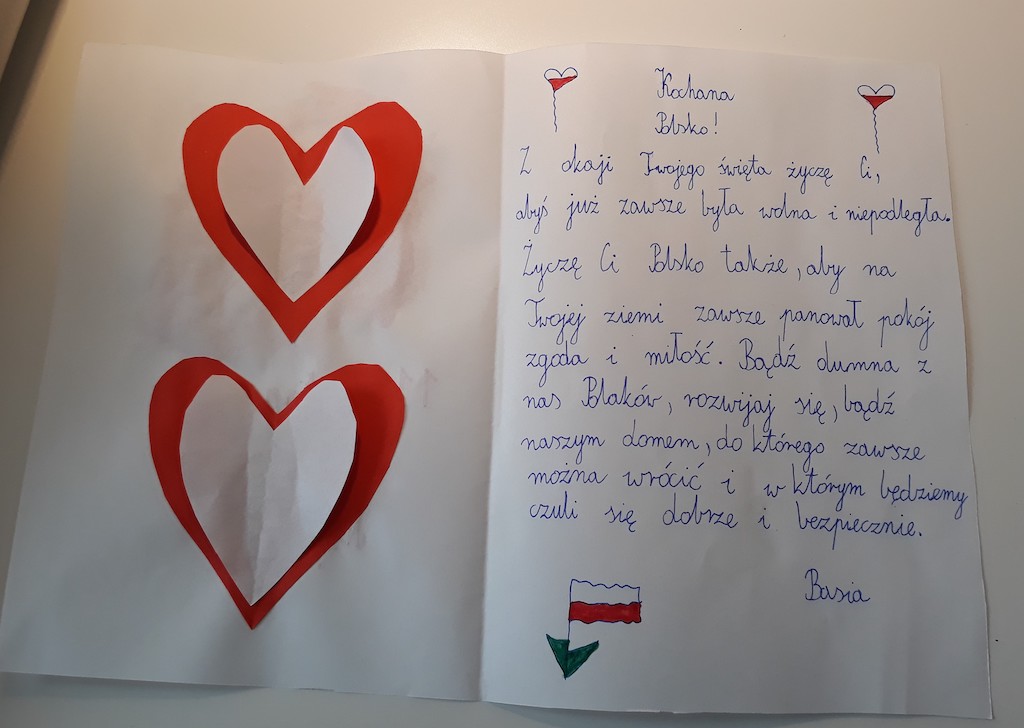 Kochana
Polsko!
Z okaji Twojego święta życzę Ci,
abyś już zawsze była wolna i niepodległa.
Życzę Ci Polsko także, aby na
Twojej ziemi zawsze panował pokój
zgoda i miłość. Bądź dumna z
nas Polaków, rozwijaj się, bądź
naszym domem, do którego zawsze
można wrócić i w którym będziemy
czuli się dobrze i bezpiecznie.
Basia